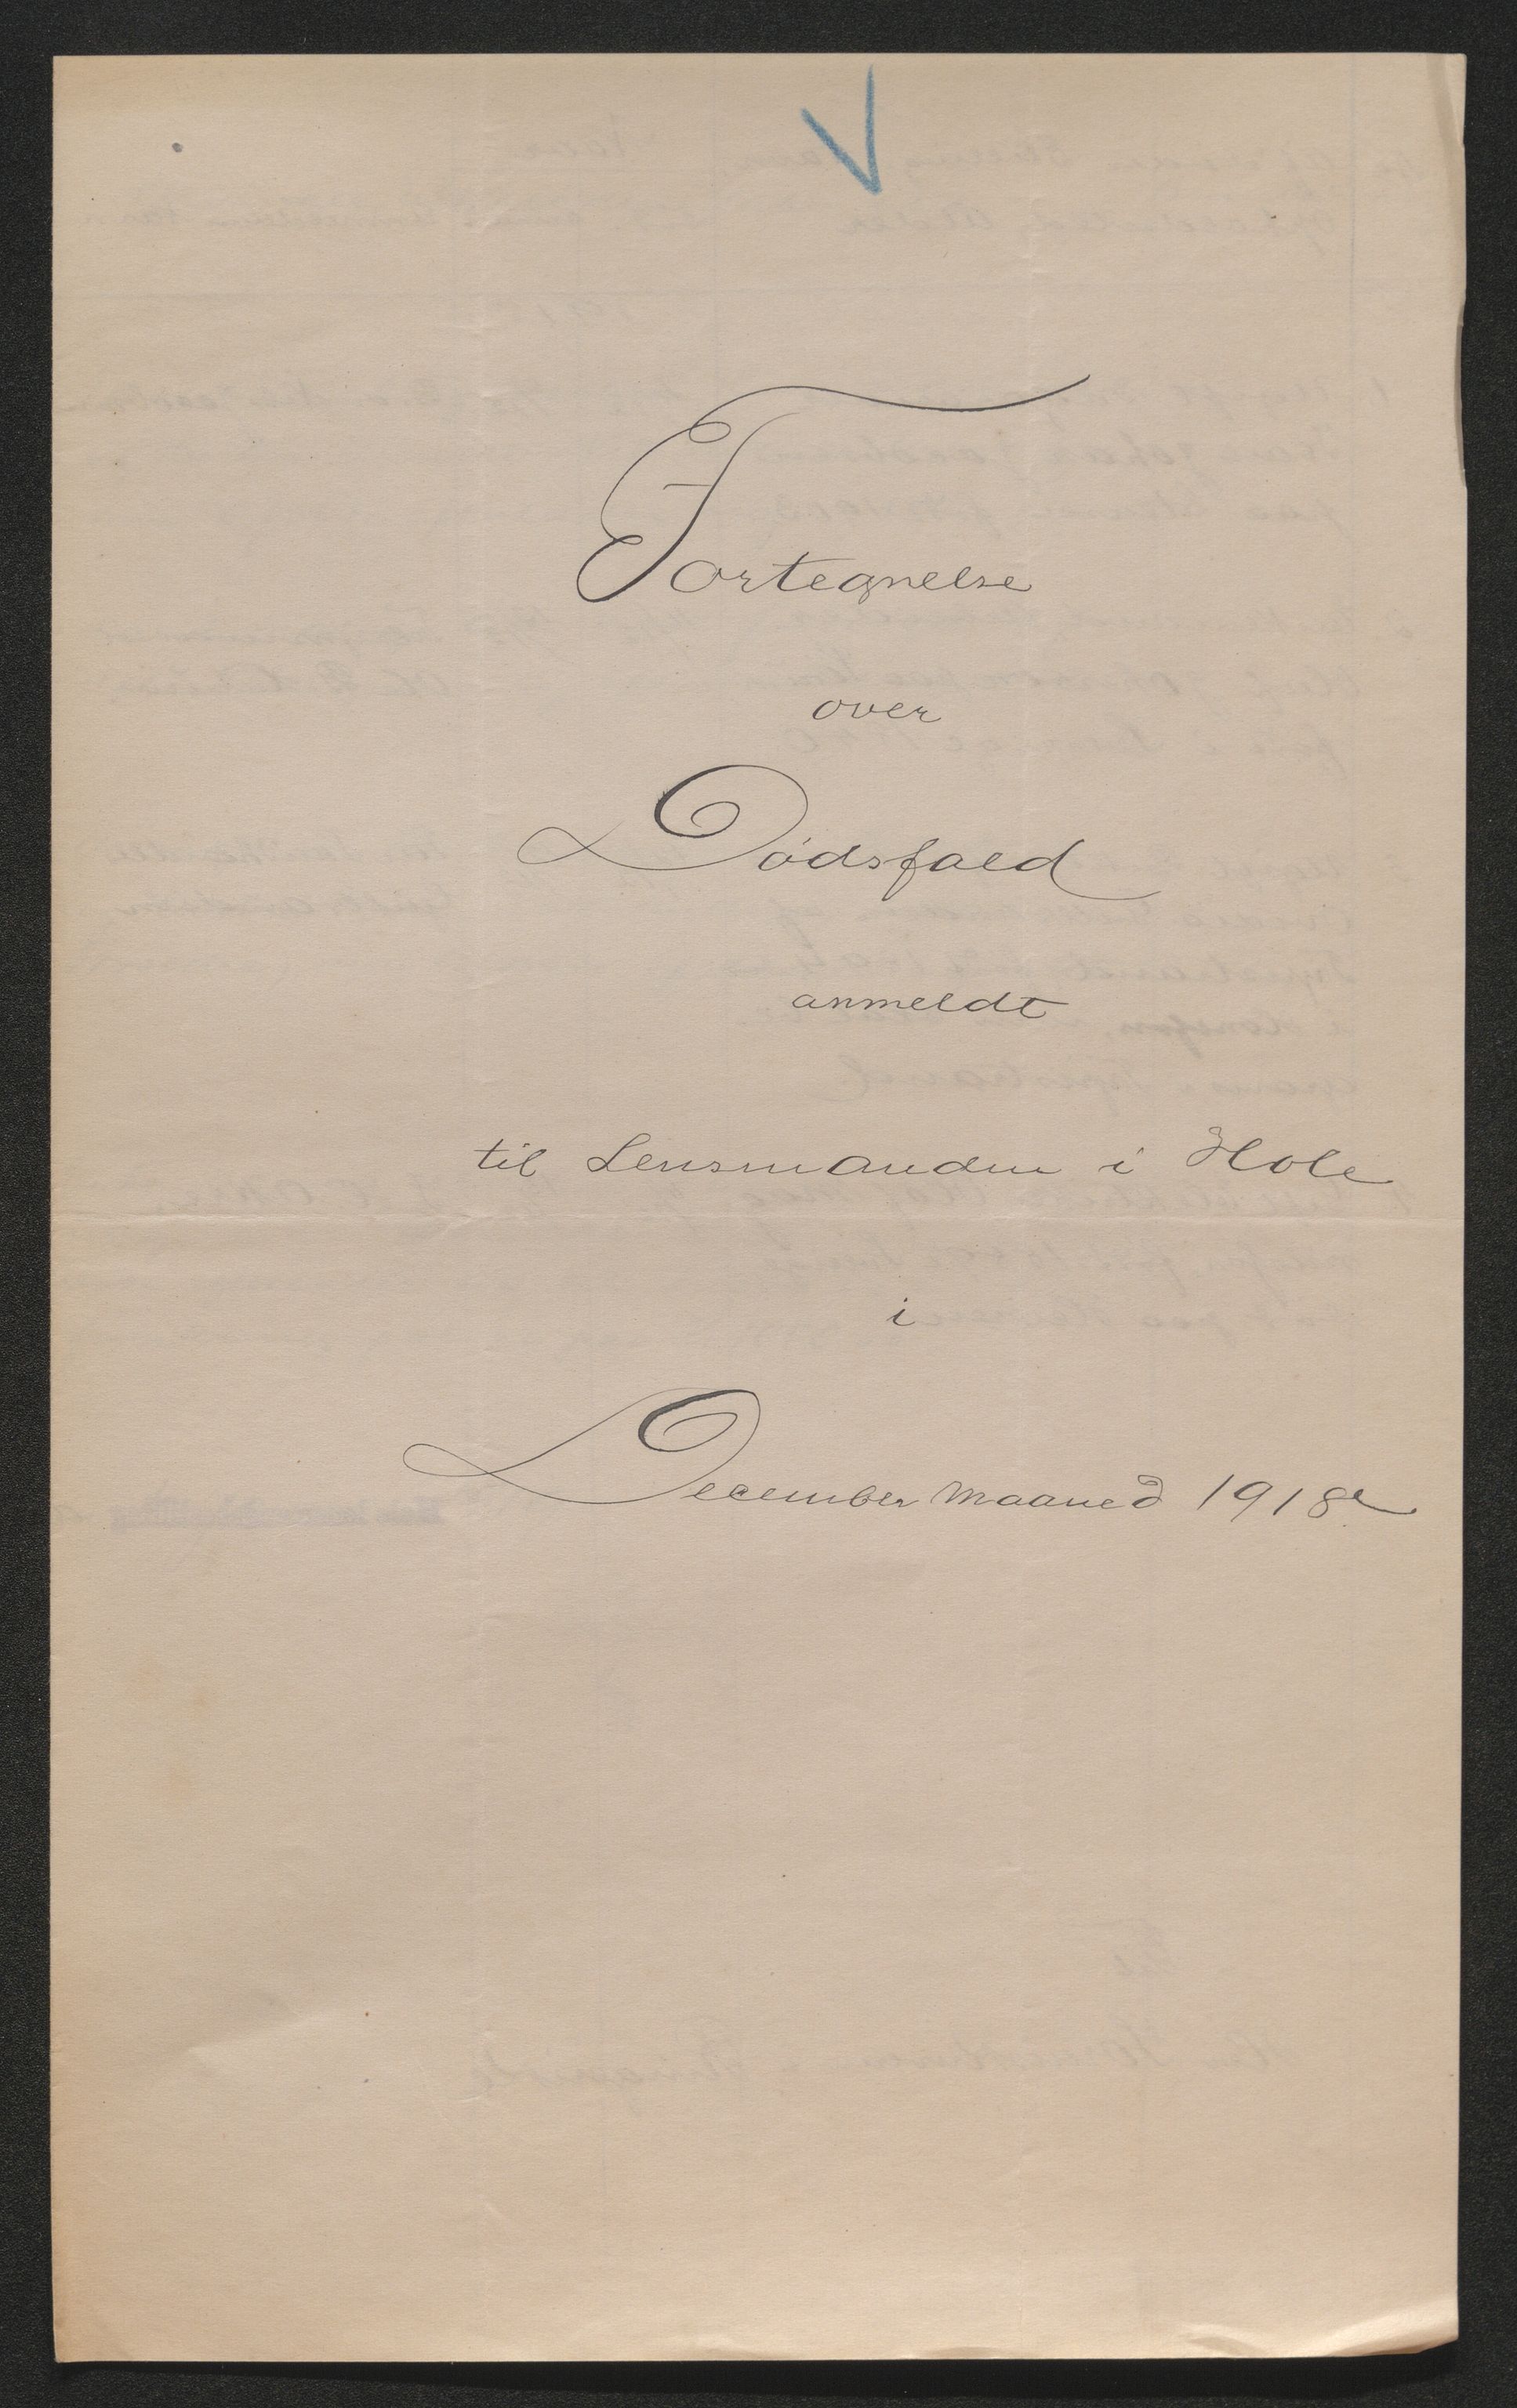 Fortegnelse
over
Dødsfald
anmeldt
til Lensmanden i Hole
i
December Maaned 1918